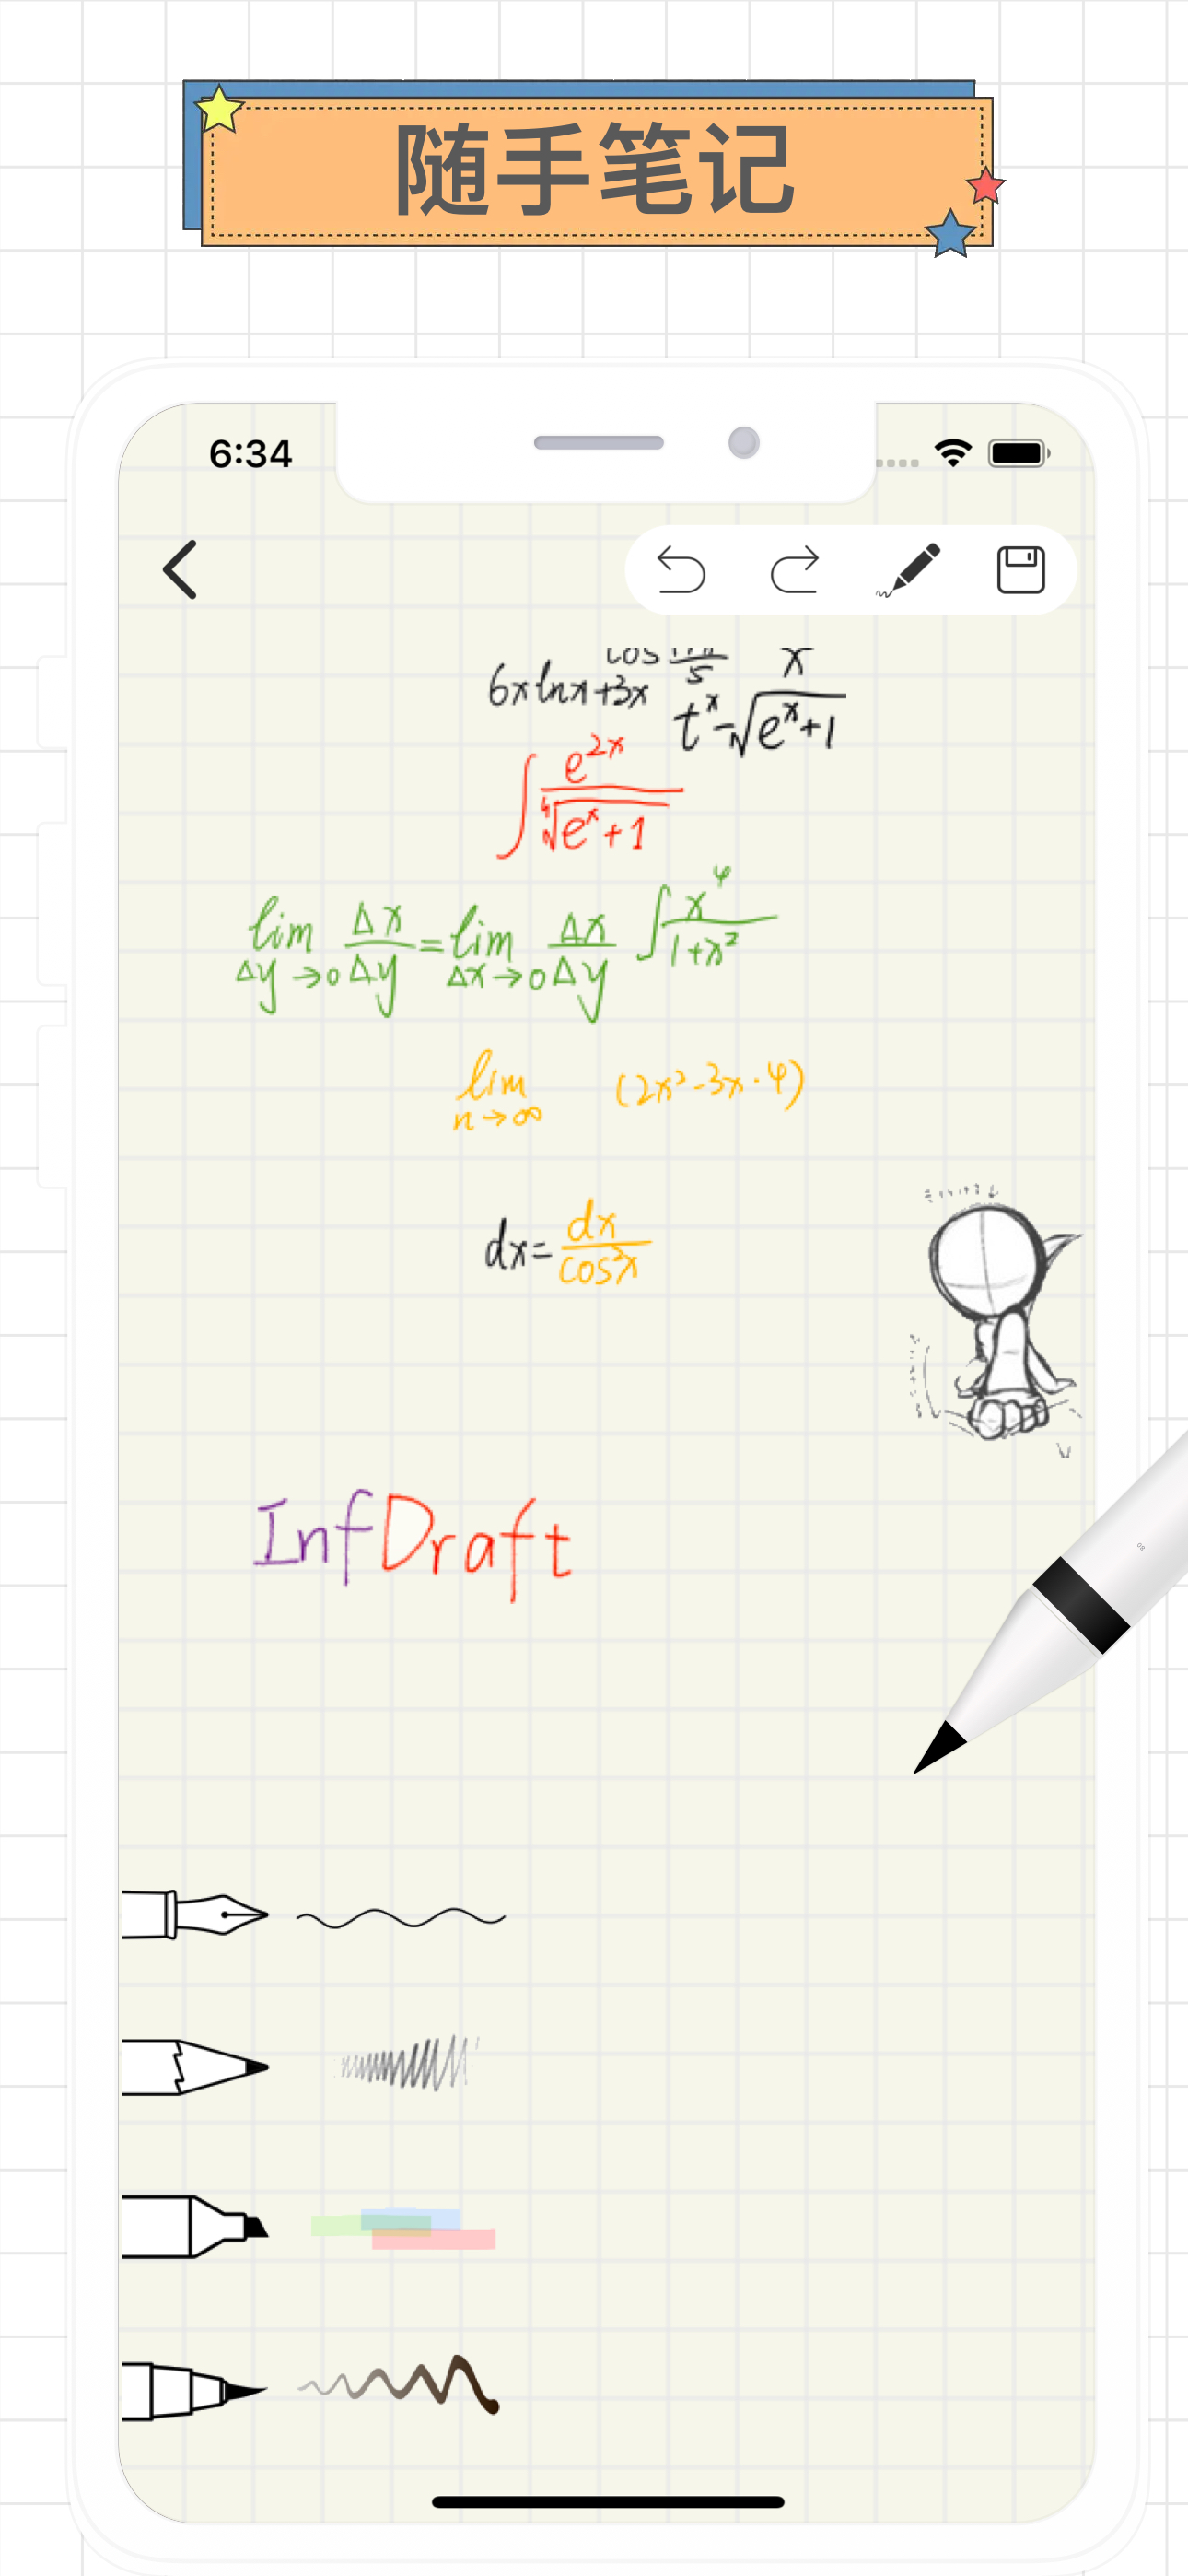 随手笔记
6:34
cos 5 x
6x lnx+3x t^x-√(e^x+1)
∫ e^2x / ∜(e^x+1)
lim Δy→0 Δx/Δy = lim Δx→0 Δx/Δy ∫ x^4/(1+x^2)
lim n→∞ (2x²-3x·4)
dx= dx/cos²x
InfDraft